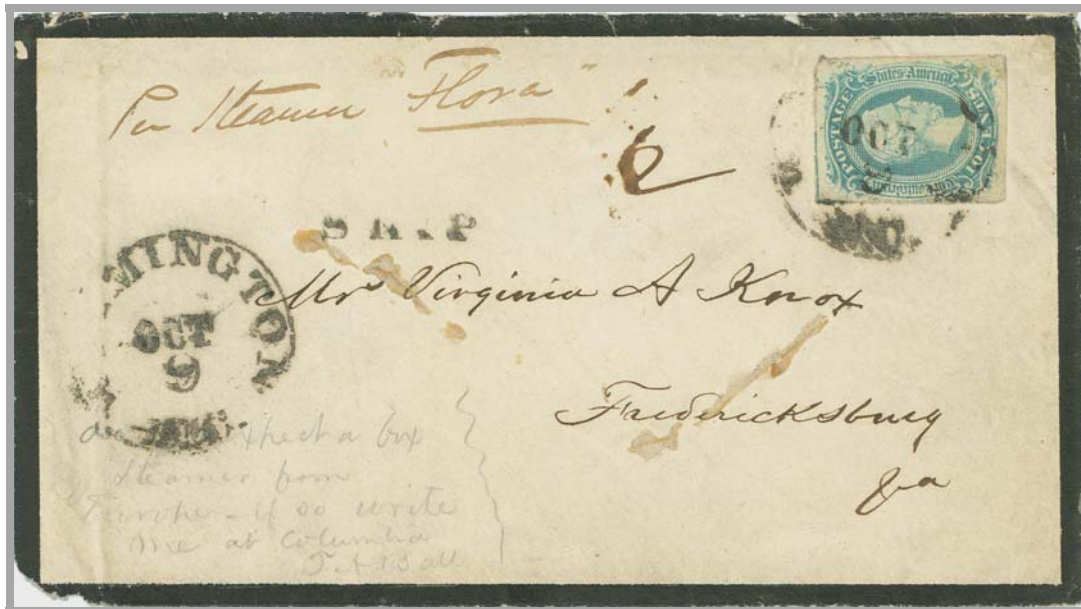 Per Steamer "Flora"
6
POSTAGE
States America
TEN CENTS
OCT
SHIP
MINGTON
OCT
9
Mrs Virginia A Knox
Fredericksburg
Va
expect a box
Steamer from
Europe - if so write
me at Columbia
T. A. Ball